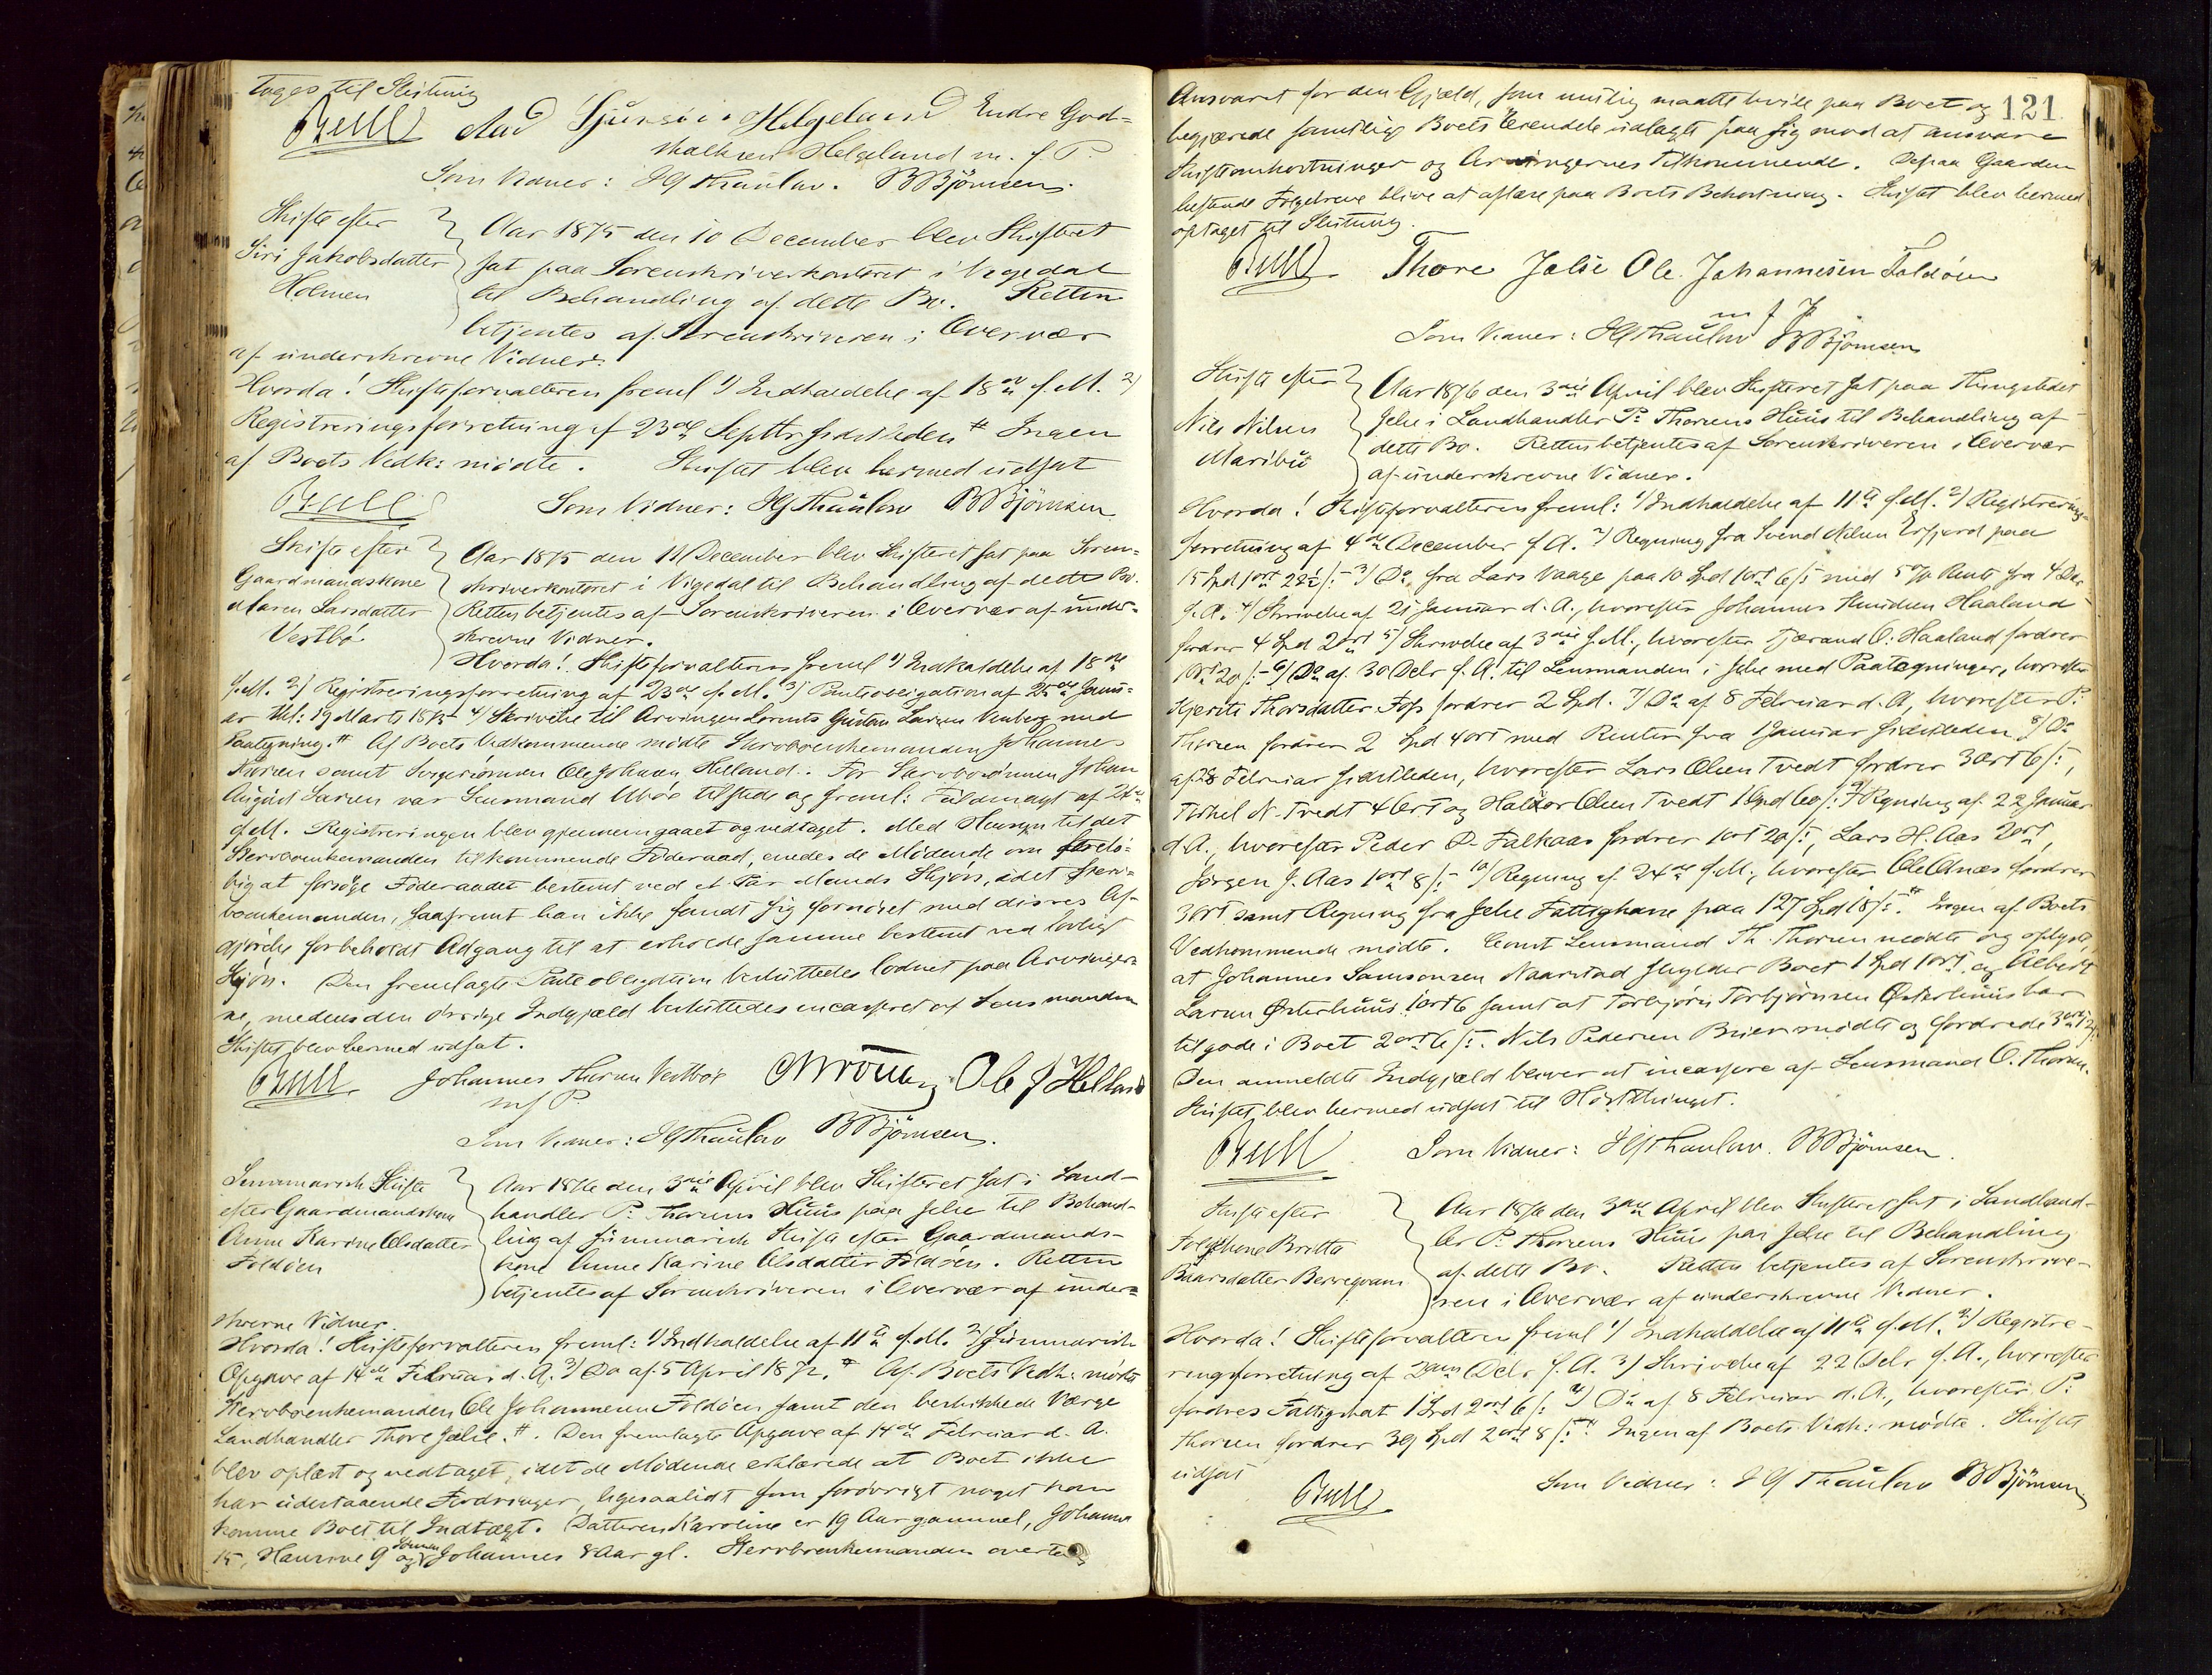 toges til Slutning
Bull Aad Sjursøn Helgeland Endre God-
skalksen Helgeland m. f. P.
Som Vidner: HG Thaulow. B Bjørnsen.
Skifte efter
Siri Jakobsdatter
Holmen
Aar 1875 den 10 December blev Skifteret
sat paa Sorenskriverkontoret i Vigedal
til Behandling af dette Bo. Retten
betjentes af Sorenskriveren i Overvær
af underskrevne Vidner.
Hvorda! Skifteforvalteren freml 1) Indkaldelse af 18de f. M. 2)
Registreringsforretning af 23de Septbr sidstleden # Ingen
af Boets Vedk: mødte. Skiftet blev hermed udsat
Bull Som Vidner: HG Thaulow B Bjørnsen
Skifte efter
Gaardmandskone
Maren Larsdatter
Vestbø
Aar 1875 den 11 December blev Skifteret sat paa Soren-
skriverkontoret i Vigedal til Behandling af dette Bo.
Retten betjentes af Sorenskriveren i Overvær af under-
skrevne Vidner.
Hvorda! Skifteforvalteren freml 1) Indkaldelse af 18de
f. M. 2) Registreringsforretning af 23de f. M. 3) Panteobligation af 25de Janu-
ar thl: 19 Marts 1875 4) Skrivelse til Arvingen Lorents Gustav Larsen med
Paategning. # Af Boets Vedkommende mødte Stervboenkemanden Johannes
samt Svigersønnen Ole Johan Helland. For Stervbosønnen Johan
August Larsen var Lensmand tilstede og freml: Fuldmagt af 24de
f. M. Registreringen blev gjennemgaaet og vedtaget. Med Hensyn til det
Stervboenkemanden tilkommende Føderaad, enedes de Mødende om forelø-
big at forsøge Føderaadet bestemt ved et Par Mands Skjøn, idet Sterv-
boenkemanden, saafremt han ikke fandt sig fornøiet med disses Af-
gjørelse forbeholdt Adgang til at erholde samme bestemt ved lovligt
Skjøn. Den fremlagte Panteobligation besluttedes lodnet paa Arvinger-
ne, medens den øvrige Indgjæld besluttedes incasseret af Lensmanden
Skiftet blev hermed udsat.
Bull Johannes Vestbø Ole J Helland
m f P.
Som Vidner: HG Thaulow B Bjørnsen.
Summarisk Skifte
efter Gaardmandskone
Anne Karine Olsdatter
Foldøen
Aar 1876 den 3die April blev Skifteret sat i Land-
handler P. Thorsens Huus paa Jelse til Behand-
ling af summarisk Skifte efter Gaardmands-
kone Anne Karine Olsdatter Foldøen. Retten
betjentes af Sorenskriveren i Overvær af under-
skrevne Vidner.
Hvorda! Skifteforvalteren freml: 1) Indkaldelse af 11te f. M. 2) Summarisk
Opgave af 14de Februar d. A. 3) Do af 5 April 1872. # Af Boets Vedk: mødte
Stervboenkemanden Ole Johannesen Foldøen samt den beskikkede Værge
Landhandler Thore Jelse. #. Den fremlagte Opgave af 14de Februar d. A.
blev oplæst og vedtaget, idet de Mødende erklærede at Boet ikke
har udestaaende Fordringer, ligesaalidt som forøvrigt noget kan
komme Boet til Indtægt. Datteren Karoline er 19 Aar gammel, Johanne
15, Hansine 9 og Sønnen Johannes 8 Aar gl. Stervboenkemanden overtog
121
Ansvaret for den Gjæld, som mulig maatte hvile paa Boet og
begjærede samtlige Boets Eiendele udlagte paa sig mod at ansvare
Skifteomkostninger og Arvingernes Tilkommende. De paa Gaarden
heftende Følgebreve blive at aflæse paa Boets Bekostning. Skiftet blev hermed
optaget til Slutning.
Bull. Thore Jelse Ole Johannesen Foldøen
m f P
Som Vidner: HG Thaulow B Bjørnsen
Skifte efter
Nils Nilsen
Maribu
Aar 1876 den 3die April blev Skifteret sat paa Thingstedet
Jelse i Landhandler P. Thorsens Huus til Behandling af
dette Bo. Retten betjentes af Sorenskriveren i Overvær
af underskrevne Vidner.
Hvorda! Skifteforvalteren freml: 1) Indkaldelse af 11te f. M. 2) Registrerings-
forretning af 4de December f. A. 2) Regning fra Svend Nilsen Erfjord paa
15 Spd 1 ort 22½ s: 3) Do fra Lars Vaage paa 10 Spd 1 ort 6 s: med 5% Rente fra 4 Dec
f. A. 4) Skrivelse af 21 Januar d. A., hvorefter Johannes Knudsen Haaland
fordrer 4 Spd 2 ort 5) Skrivelse af 3die f. M., hvorefter Tjærand O. Haaland fordrer
1 ort 20 s: 6) Do af 30 Decbr f. A. til Lensmanden i Jelse med Paategninger, hvorefter
Thorsdatter Foss fordrer 2 Spd. 7) Do af 8 Februar d. A, hvorefter P.
Thorsen fordrer 2 Spd 4 ort med Renter fra 1 Januar sidstleden 8) Do
af 28 Februar sidstleden, hvorefter Lars Olsen Tvedt fordrer 3 ort 6 s:,
Torkel N. Tvedt 4 ort og Haldor Olsen Tvedt 1 Spd 60 s: 9) Regning af 22 Januar
d. A., hvorefter Peder D. Falkaas fordrer 1 ort 20 s:, Lars H. Aas 2 ort,
Jørgen J. Aas 1 ort 8 s: 10) Regning af 24de f. M., hvorefter Ole Aas fordrer
3 ort samt Regning fra Jelse Fattigkasse paa 127 Spd 18 s: # Ingen af Boets
Vedkommende mødte. Const Lensmand Th. Thorsen mødte og oplyste
at Johannes Samsonsen Naarstad skylder Boet 1 Spd 1 ort, og Albert
Larsen Østerhuus 1 ort 6 samt at Torbjørn Torbjørnsen Østerhuus har
tilgode i Boet 2 ort 6 s: Nils Pedersen mødte og fordrede 3 ort
Den anmeldte Indgjæld bliver at incassere af Lensmand O. Thorsen.
Skiftet blev hermed udsat til Høstthinget.
Bull Som Vidner: HG Thaulow. B Bjørnsen.
Skifte efter
Britta
Baarsdatter
Aar 1876 den 3die April blev Skifteret sat i Landhand-
ler P. Thorsens Huus paa Jelse til Behandling
af dette Bo. Retten betjentes af Sorenskrive-
ren i Overvær af underskrevne Vidner.
Hvorda! Skifteforvalteren freml 1) Indkaldelse af 11te f. M. 2) Registre-
ringsforretning af Decbr f. A. 3) Skrivelse af 22 Decbr f. A., hvorefter
fordres Fattigskat 1 Spd 2 ort 6 s: 4) Do af 8 Februar d. A., hvorefter P.
Thorsen fordrer 39 Spd 2 ort 8 s: # Ingen af Boets Vedk: mødte. Skiftet
udsat
Bull Som Vidner: HG Thaulow B Bjørnsen